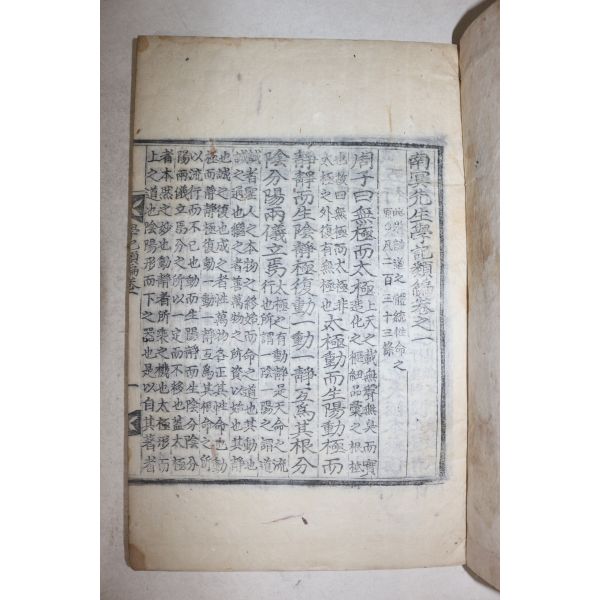 南冥先生學記類編卷之一
此篇論道之體統性命之
凡二百三十三條
周子曰無極而太極
上天之載無聲無臭而實
造化之樞紐品彙之根柢
也故曰無極而太極非
太極之外復有無極也
太極動而生陽動極而
靜靜而生陰靜極復動一動一靜互爲其根分
陰分陽兩儀立焉
太極之有動靜是天命之流
行也所謂一陰一陽之謂道
誠者聖人之本物之終始而命之道也其動也
誠之通也繼之者善萬物之所資以始也其靜
也誠之復也成之者性萬物各正其性命也動
極而靜靜極復動一動一靜互爲其根命之所
以流行而不已也動而生陽靜而生陰分陰分
陽兩儀立焉分之所以一定而不移也蓋太極
者本然之妙也動靜者所乘之機也太極形而
上之道也陰陽形而下之器也是以自其著者
學記類編卷一
一